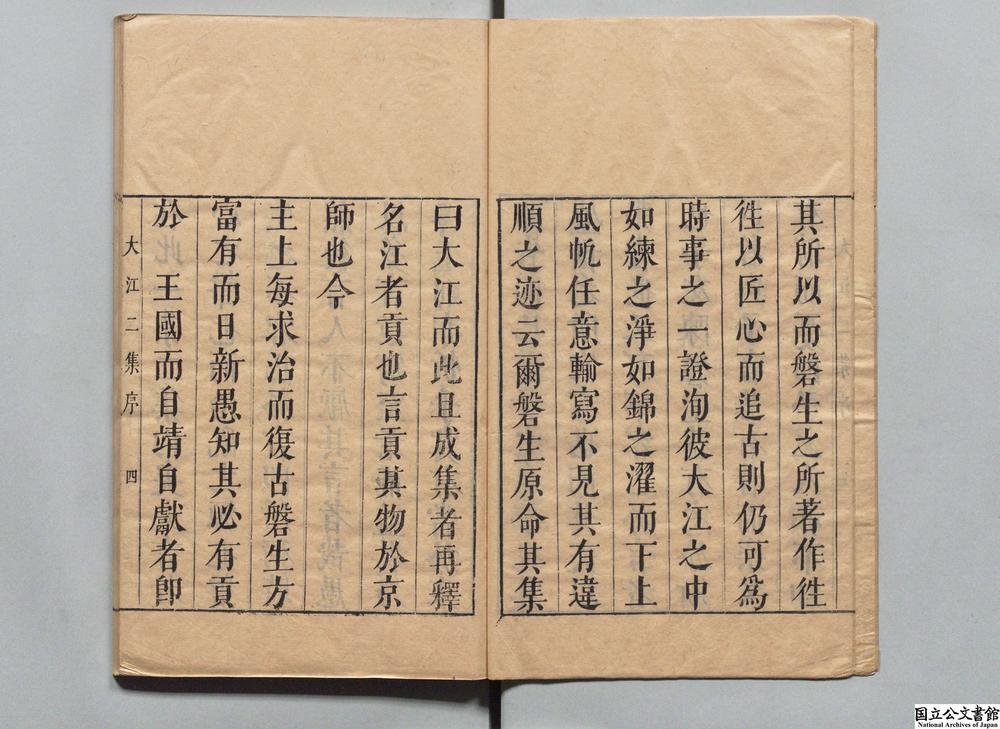 其所以而磐生之所著作徃
徃以匠心而追古則仍可爲
時事之一證洵彼大江之中
如練之淨如錦之濯而下上
風帆任意輸寫不見其有違
順之迹云爾磐生原命其集
曰大江而此且成集者再釋
名江者貢也言貢其物於京
師也今
主上每求治而復古磐生方
富有而日新愚知其必有貢
於此王國而自靖自獻者卽
大江二集序 四
国立公文書館
National Archives of Japan